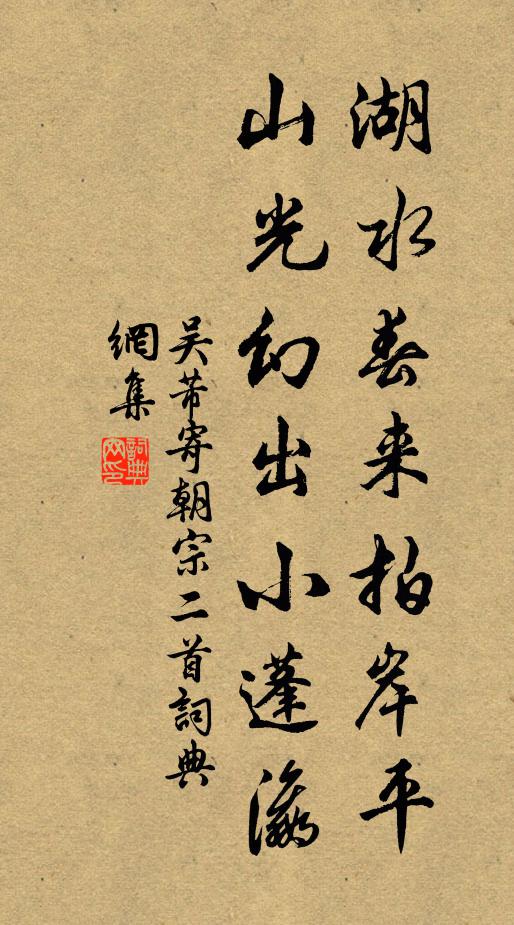 湖水春来拍岸平
山光幻出小蓬瀛
吴芾寄朝宗二首詞典
網集
詞典網印